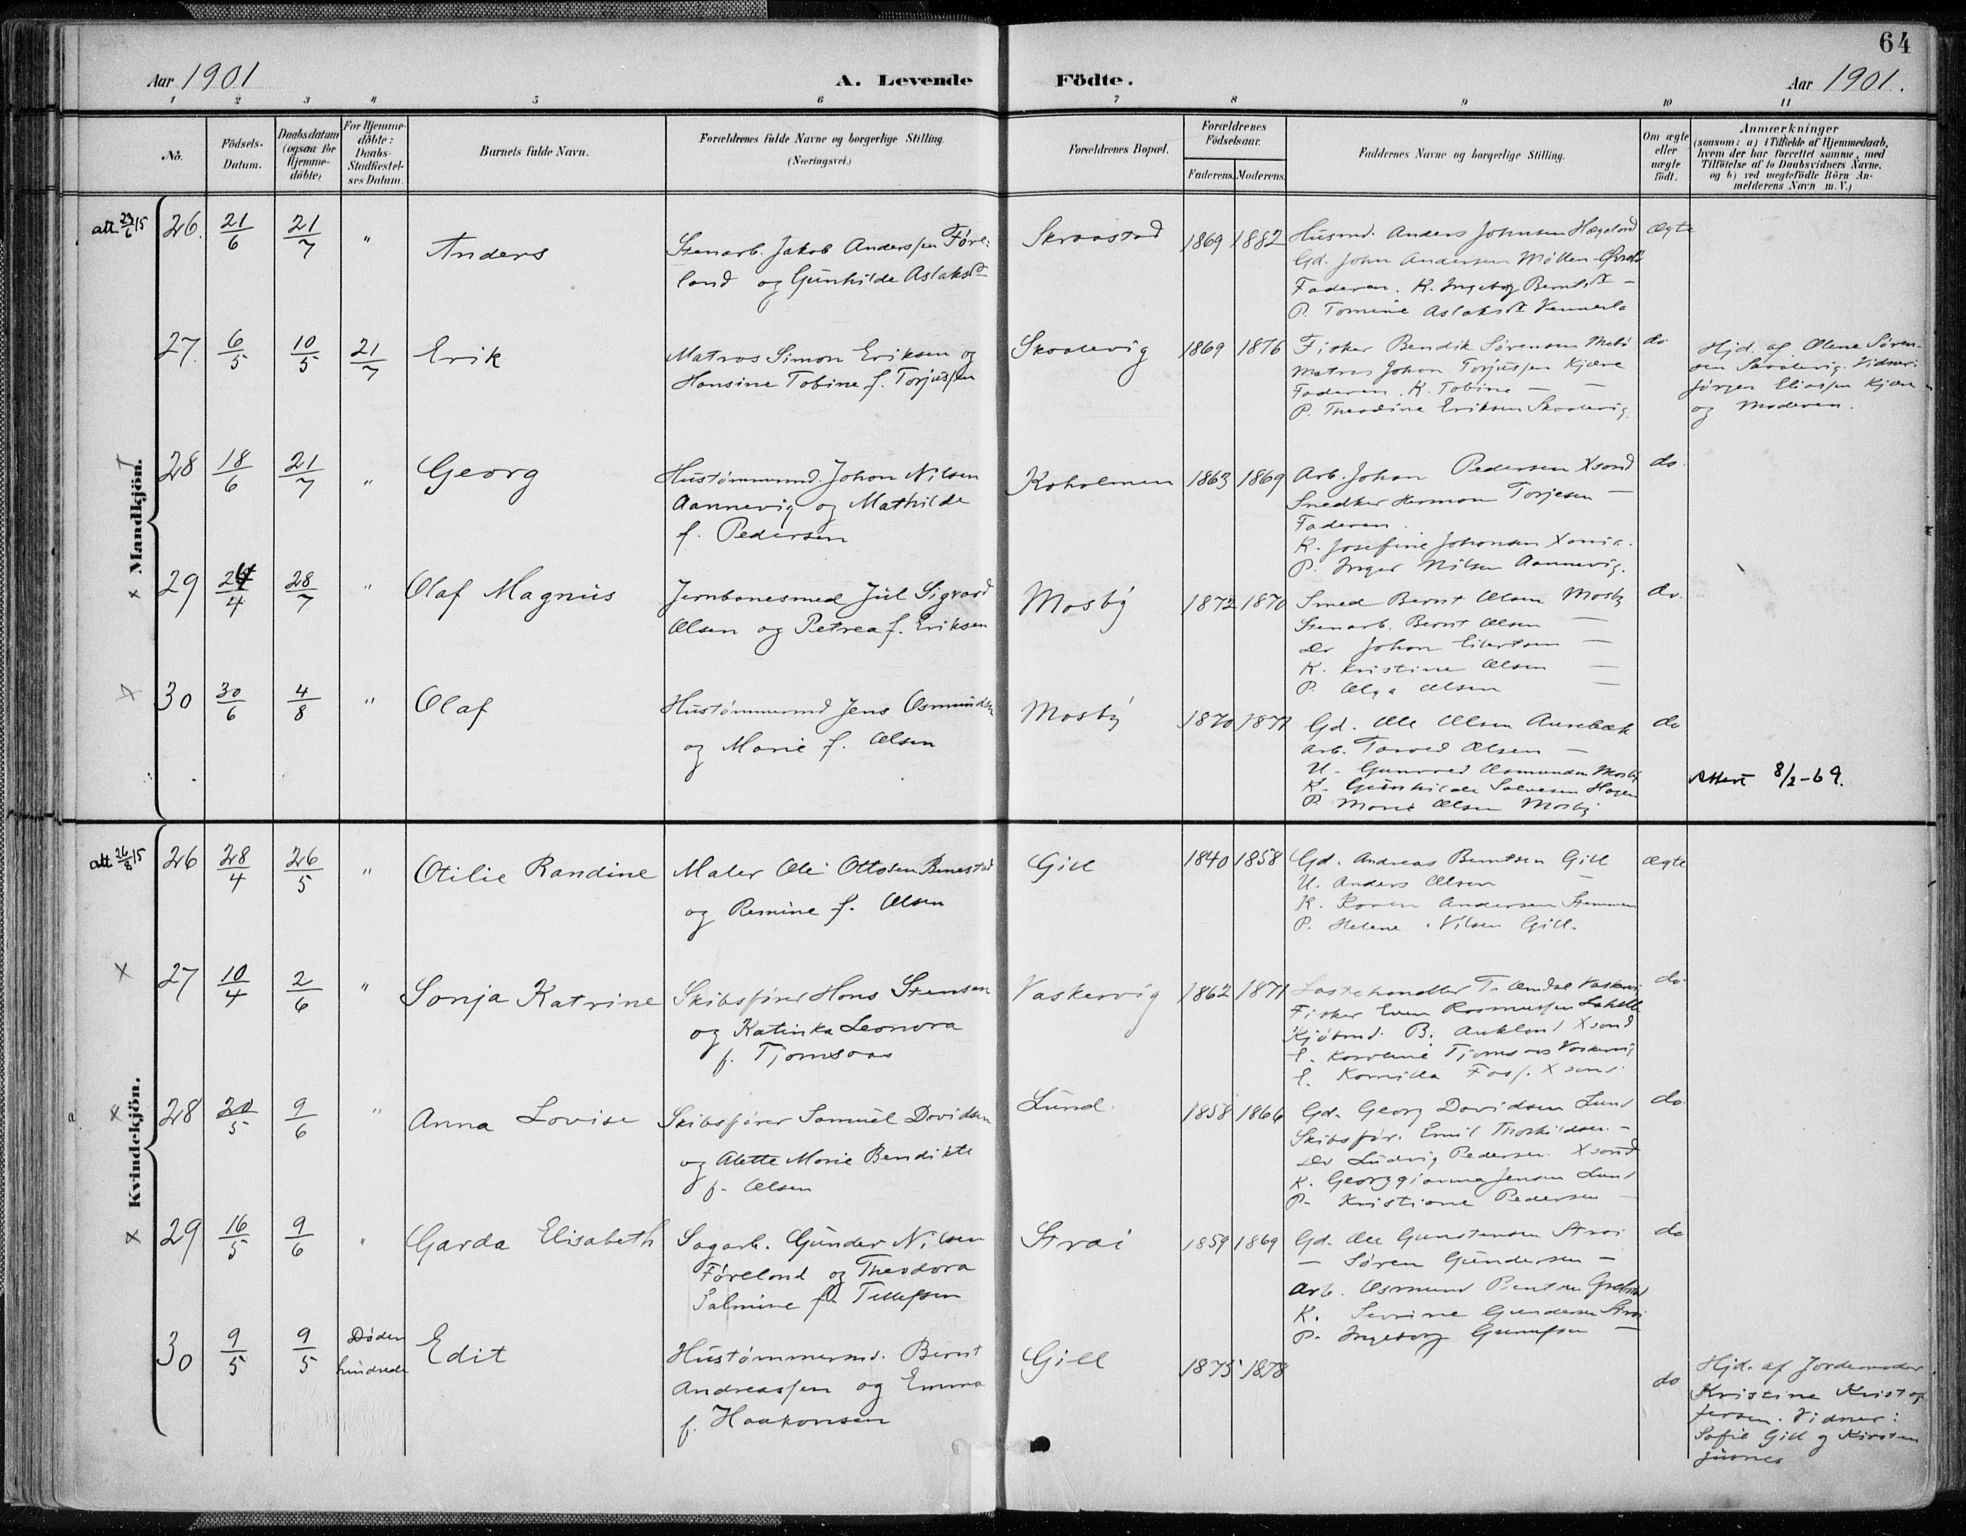 64
Aar 1901
A. Levende Födte.
Aar 1901.
1 2 3 4 5 6 7 8 9 10 11
No.
Födsels-Datum.
Daabsdatum (ogsaa for Hjemme-döbte)
For Hjemme-döbte: Daabs-Stadfæstel-ses Datum.
Barnets fulde Navn.
Forældrenes fulde Navne og borgerlige Stilling.
(Næringsvei.)
Forældrenes Bopæl.
Forældrenes Födselsaar.
Faderens. Moderens.
Faddernes Navne og borgerlige Stilling.
Om ægte eller uægte födt.
Anmærkninger
(saasom: a) i Tilfælde af Hjemmedaab, hvem der har forrettet samme, med Tilföielse af to Daabsvidners Navne, og b) ved uægtefödte Börn An-melderens Navn m. V.)
Mandkjön.
att 23/6 15
26. 21/6 21/7 " Anders
Stenarb. Jakob Anderssen Føre-
land og Gunhilde Aslaksdt
Skraastad 1869 1882
Husmd. Anders Johnsen Hægeland
Gd. John Andersen Mollen
Faderen. K. Ingeborg Berntsdt –
P. Tomine Aslaksdt Vennesla
ægte
27. 6/5 10/5 21/7 Erik
Matros Simon Eriksen og
Hansine Tobine f. Torjussen
Skaalevig 1869 1876
Fisker Bendik Sørensen
Matros Johan Torjussen Kjære
Faderen. K. Tobine – –
P. Theodine Eriksen Skaalevig.
do
Hjd. af Olene Søren-
sen Skaalevig. Vidner:
Jörgen Eliassen Kjære
og Moderen.
28 18/6 21/7 " Georg
Hustømmermd. Johan Nilsen
Aannevig og Mathilde
f. Pedersen
Koholmen 1863 1869
Arb. Johan Pedersen Xsand
Snedker Herman Torjesen –
Faderen.
K. Josefine Johansen Xania.
P. Inger Nilsen Aannevig.
do.
29 24/4 28/7 " Olaf Magnus
Jernbanesmed Jul Sigvard
Olsen og Petrea f. Eriksen
Mosby 1872 1870
Smed Bernt Olsen Mosby
Stenarb. Bernt Olsen –
Do Johan Eilertsen –
K. Kristine Olsen –
P. Olga Olsen –
do.
30 30/6 4/8 " Olaf
Hustømmermd Jens Osmundsen
og Marie f. Olsen
Mosby 1870 1871
Gd. Ole Olsen Aurebæk
Arb. Tarved Olsen –
U. Gunvald Osmundsen Mosby
K. Gunhilde Salvesen Hagen
P. Marie Olsen Mosby
do
Attest 8/2-69.
Kvindekjön.
att 26/8 15
26 28/4 26/5 " Otilie Randine
Maler Ole Ottosen Benestad
og Remine f. Olsen
Gill 1840 1858
Gd. Andreas Berntsen Gill
U. Anders Olsen –
K. Karen Andersen Stemmen
P. Helene Nilsen Gill.
ægte
27 10/4 2/6 " Sonja Katrine
Skibsfører Hans Stensen
og Katinka Leonora
f. Tjomsaas
Vaskervig 1862 1871
Lastehandler T. Omdal
Fisker Even Rasmussen
Kjøbmd. B. Aukland Xsand
f. Karoline Tjomsaas Vaskervig
f. Kornilla Xsand.
do
28 20/5 9/6 " Anna Lovise
Skibsfører Samuel Davidsen
og Alette Marie Bendikte
f. Olsen
Lund. 1858 1866
Gd. Georg Davidsen Lund
Skibsför. Emil Thorkildsen. –
Do Ludvig Pedersen Xsand
K. Georggianna Jensen Lund
P. Kristiane Pedersen –
do
29 16/5 9/6 " Garda Elisabeth
Sagarb. Gunder Nilsen
Føreland og Theodora
Salmine f. Tellefsen
Strai 1859 1869
Gd. Ole Gunstensen Strai
– Søren Gundersen –
Arb. Osmund
K. Severine Gundersen Strai
P. Ingeborg –
do
30 9/5 9/5 Døden hindrede Edit
Hustømmermd. Bernt
Andreassen og Emma
f. Haakonsen
Gill 1875 1878
do
Hjd. af Jordemoder
Kristine Kristof-
fersen. Vidner:
Sofie Gill og Kirsten